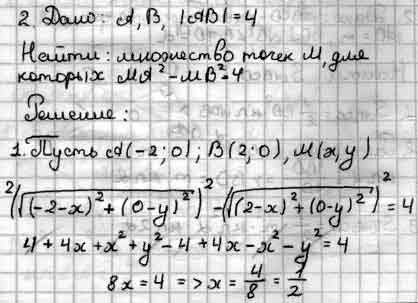 2 Дано: A, B, |AB|=4
Найти: множество точек M, для
которых MA²-MB²=4
Решение:
1. Пусть A(-2;0); B(2;0), M(x,y)
²(√((-2-x)²+(0-y)²))²-(√((2-x)²+(0-y)²))²=4
4+4x+x²+y²-4+4x-x²-y²=4
8x=4 => x=4/8=1/2